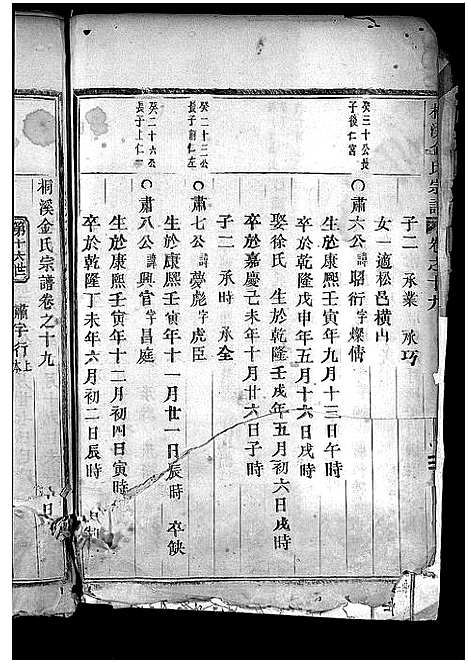 桐溪金氏宗譜 卷之十九
子二 承業 承巧
女一適松邑橫山
癸三十公長
子後仁宮
肅六公諱昭衍字燦傳
生於康熙壬寅年九月十三日午時
卒於乾隆戊申年五月十六日戌時
娶徐氏 生於乾隆壬戌年五月初六日戌時
卒於嘉慶己未年十月廿六日子時
子二 承時 承全
癸二十三公
長子嗣仁左
肅七公諱夢彪字虎臣
生於康熙壬寅年十一月廿一日辰時 卒缺
癸二十六公
長子上仁
肅八公諱興官字昌庭
生於康熙壬寅年十二月初四日寅時
卒於乾隆丁未年六月初二日辰時
桐溪金氏宗譜卷之十九
第十六世 肅字行上